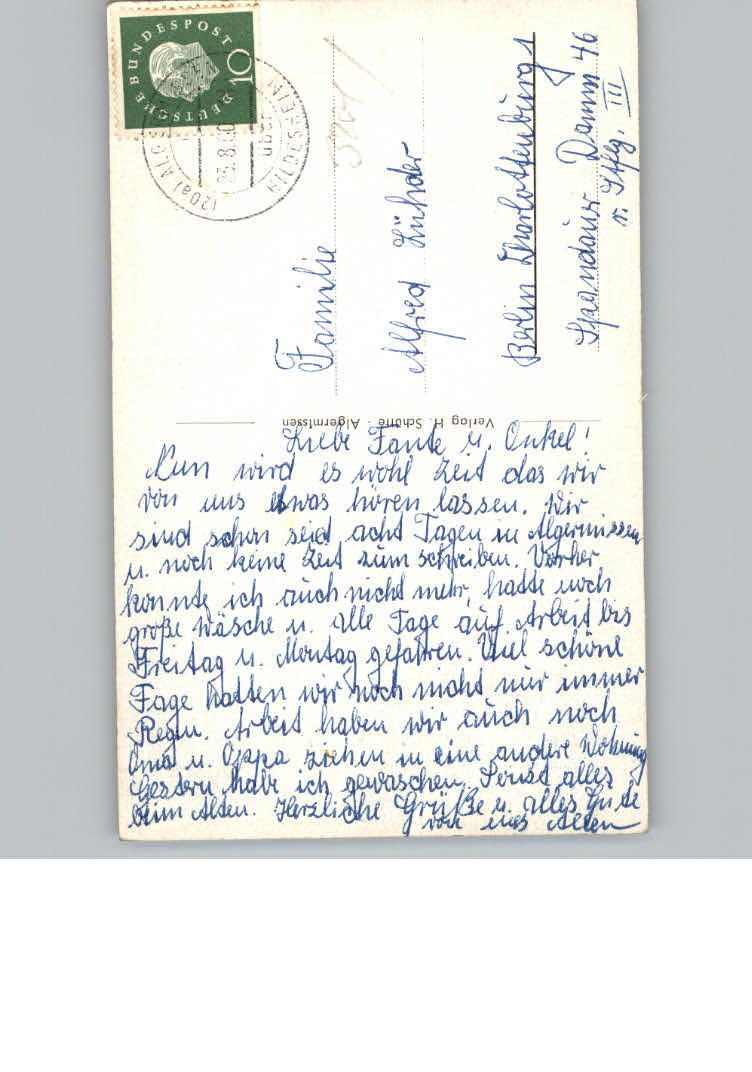 DEUTSCHE BUNDESPOST
10
(20a) ALG
23.8.60
Familie
Alfred Lühder
Berlin Charlottenburg 1
Spandauer Damm 46
v. Stflg. III
Verlag H. Schütte - Algermissen
Liebe Tante u. Onkel!
Nun wird es wohl Zeit das wir
von uns etwas hören lassen. Wir
sind schon seid acht Tagen in Algermissen
u. noch keine Zeit zum schreiben. Vorher
konnte ich auch nicht mehr, hatte noch
große Wäsche u. alle Tage auf Arbeit bis
Freitag u. Montag gefahren. Viel schöne
Tage hatten wir noch nicht nur immer
Regen. Arbeit haben wir auch noch
Oma u. Oppa ziehen in eine andere Wohnung
Gestern habe ich gewaschen. Sonst alles
beim Alten. Herzliche Grüße u. alles Gute
von uns Allen